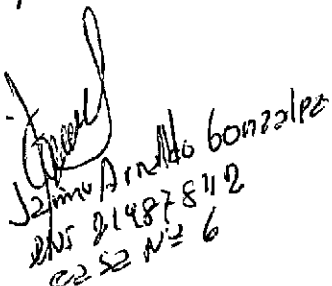 Jaime Arnaldo Gonzalez
DNI 21487842
casa Nº 6